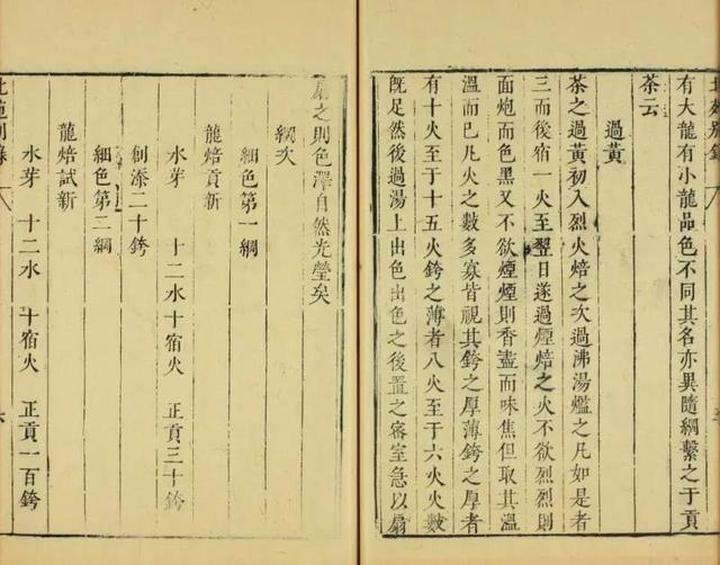 北苑別錄
有大龍有小龍品色不同其名亦異隨綱繫之于貢
茶云
過黃
茶之過黃初入烈火焙之次過沸湯爁之凡如是者
三而後宿一火至翌日遂過煙焙之火不欲烈烈則
面炮而色黑又不欲煙煙則香盡而味焦但取其溫
溫而已凡火之數多寡皆視其銙之厚薄銙之厚者
有十火至于十五火銙之薄者八火至于六火火數
既足然後過湯上出色出色之後置之密室急以扇
扇之則色澤自然光瑩矣
綱次
細色第一綱
龍焙貢新
水芽 十二水 十宿火 正貢三十銙
創添二十銙
細色第二綱
龍焙試新
水芽 十二水 十宿火 正貢一百銙
北苑別錄 六